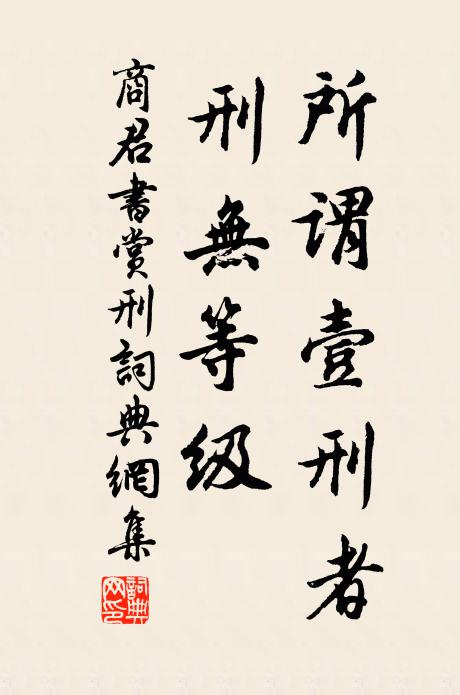 所謂壹刑者
刑無等级
商君書賞刑詞典網集
詞典
网印